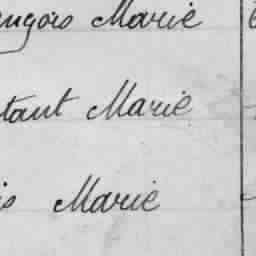 ançois Marie
tant Marie
is Marie